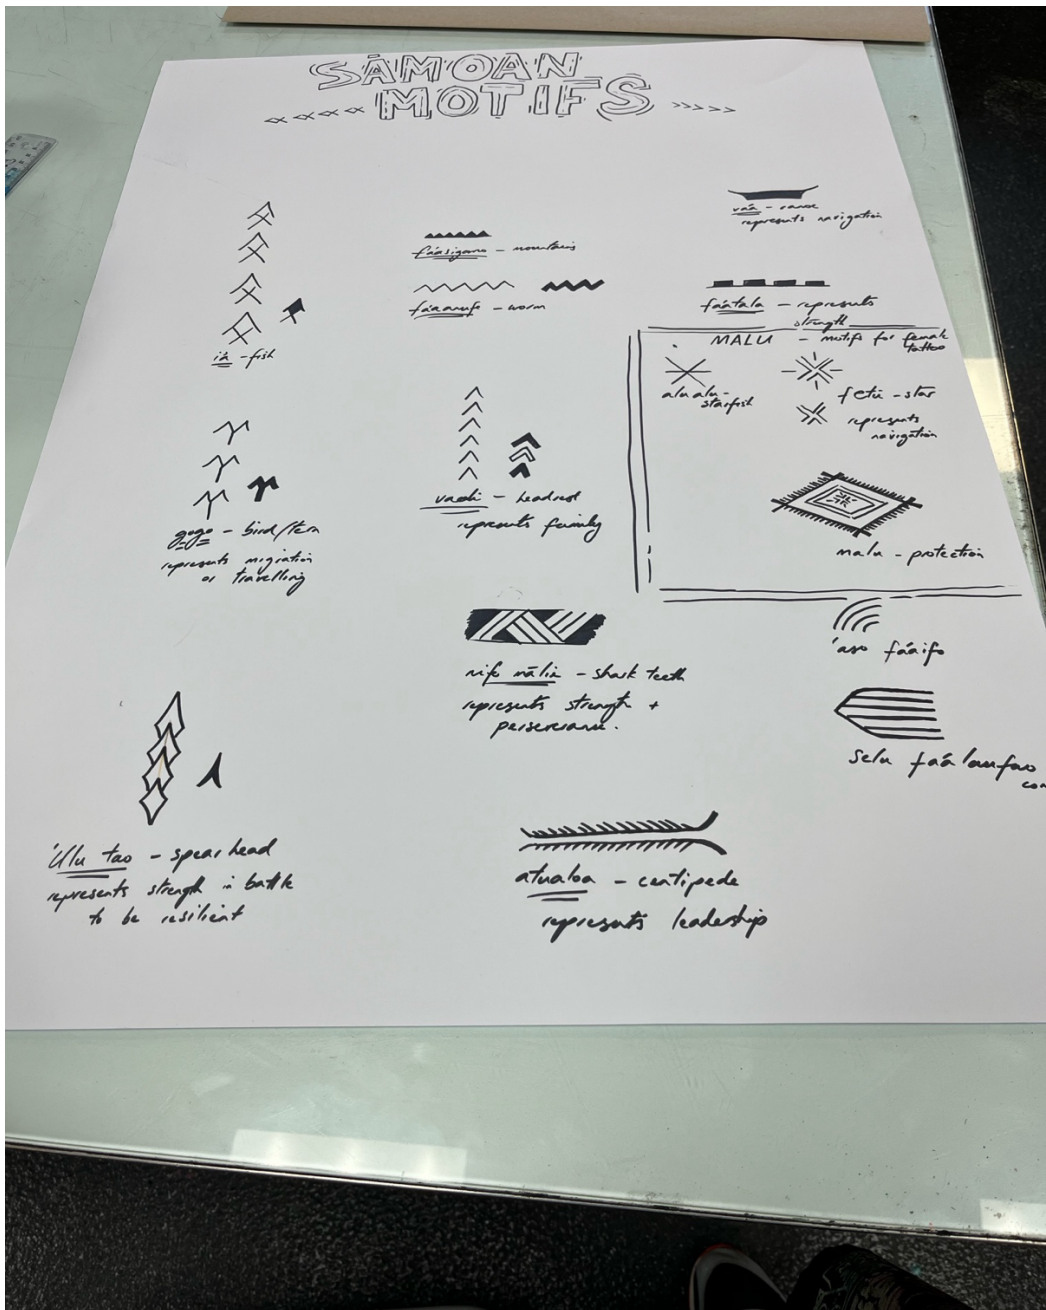 SĀMOAN
MOTIFS
i'a - fish
gogo - bird/tern
represents migration
or travelling
'Ulu tao - spear head
represents strength in battle
to be resilient
- mountains
fa'aanufe - worm
- headrest
represents family
nifo mālie - shark teeth
represents strength +
perserverance.
atualoa - centipede
represents leadership
va'a - canoe
represents navigation
fa'atala - represents
strength
MALU - motifs for female
tattoo
alualu -
starfish
fetū - star
represents
navigation
malu - protection
'aso fa'aifo
selu fa'alaufao